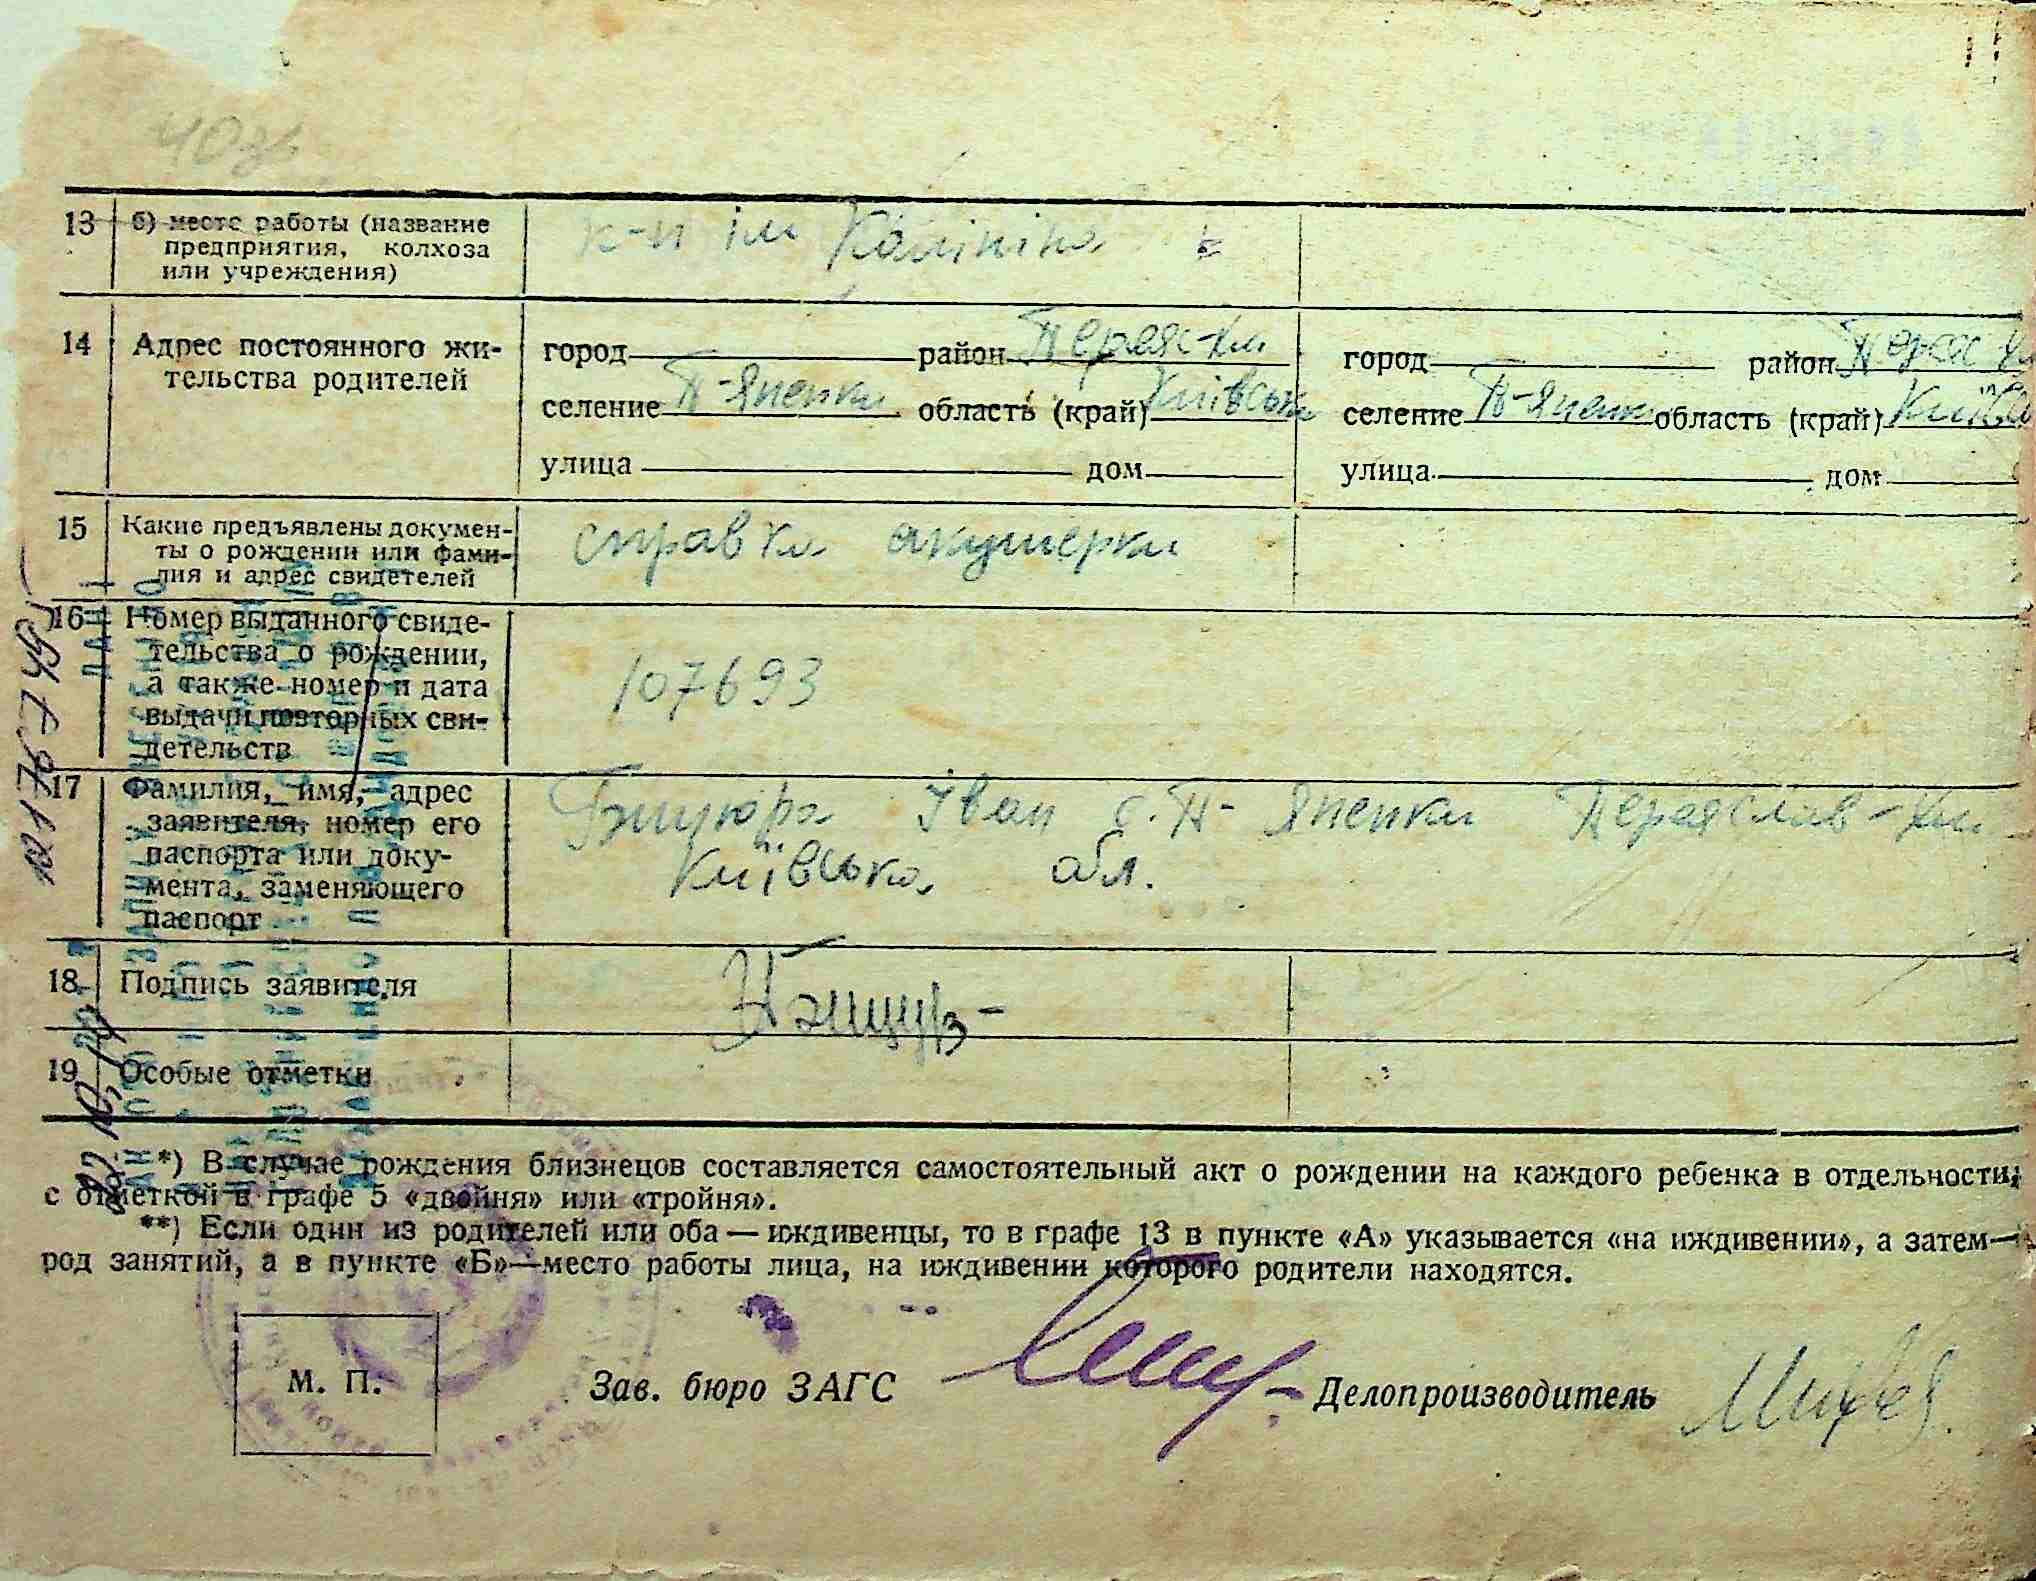 13 б) место работы (название
предприятия, колхоза
или учреждения)
к-п ім Калініна
14 Адрес постоянного жи-
тельства родителей
город район Переяс-Хм
селение П-Япенки область (край) Київська
улица дом
город район Переяс Хм
селение П-Япенки область (край)
улица дом
15 Какие предъявлены докумен-
ты о рождении или фами-
лия и адрес свидетелей
справка акушерки
16 Номер выданного свиде-
тельства о рождении,
а также номер и дата
выдачи повторных сви-
детельств
107693
17 Фамилия, имя, адрес
заявителя, номер его
паспорта или доку-
мента, заменяющего
паспорт
Іван с. П-Япенки Переяслав-Хм
Київська обл.
18 Подпись заявителя
19 Особые отметки
*) В случае рождения близнецов составляется самостоятельный акт о рождении на каждого ребенка в отдельности,
с отметкой в графе 5 «двойня» или «тройня».
**) Если один из родителей или оба — иждивенцы, то в графе 13 в пункте «А» указывается «на иждивении», а затем—
род занятий, а в пункте «Б»—место работы лица, на иждивении которого родители находятся.
М. П.
Зав. бюро ЗАГС
Делопроизводитель